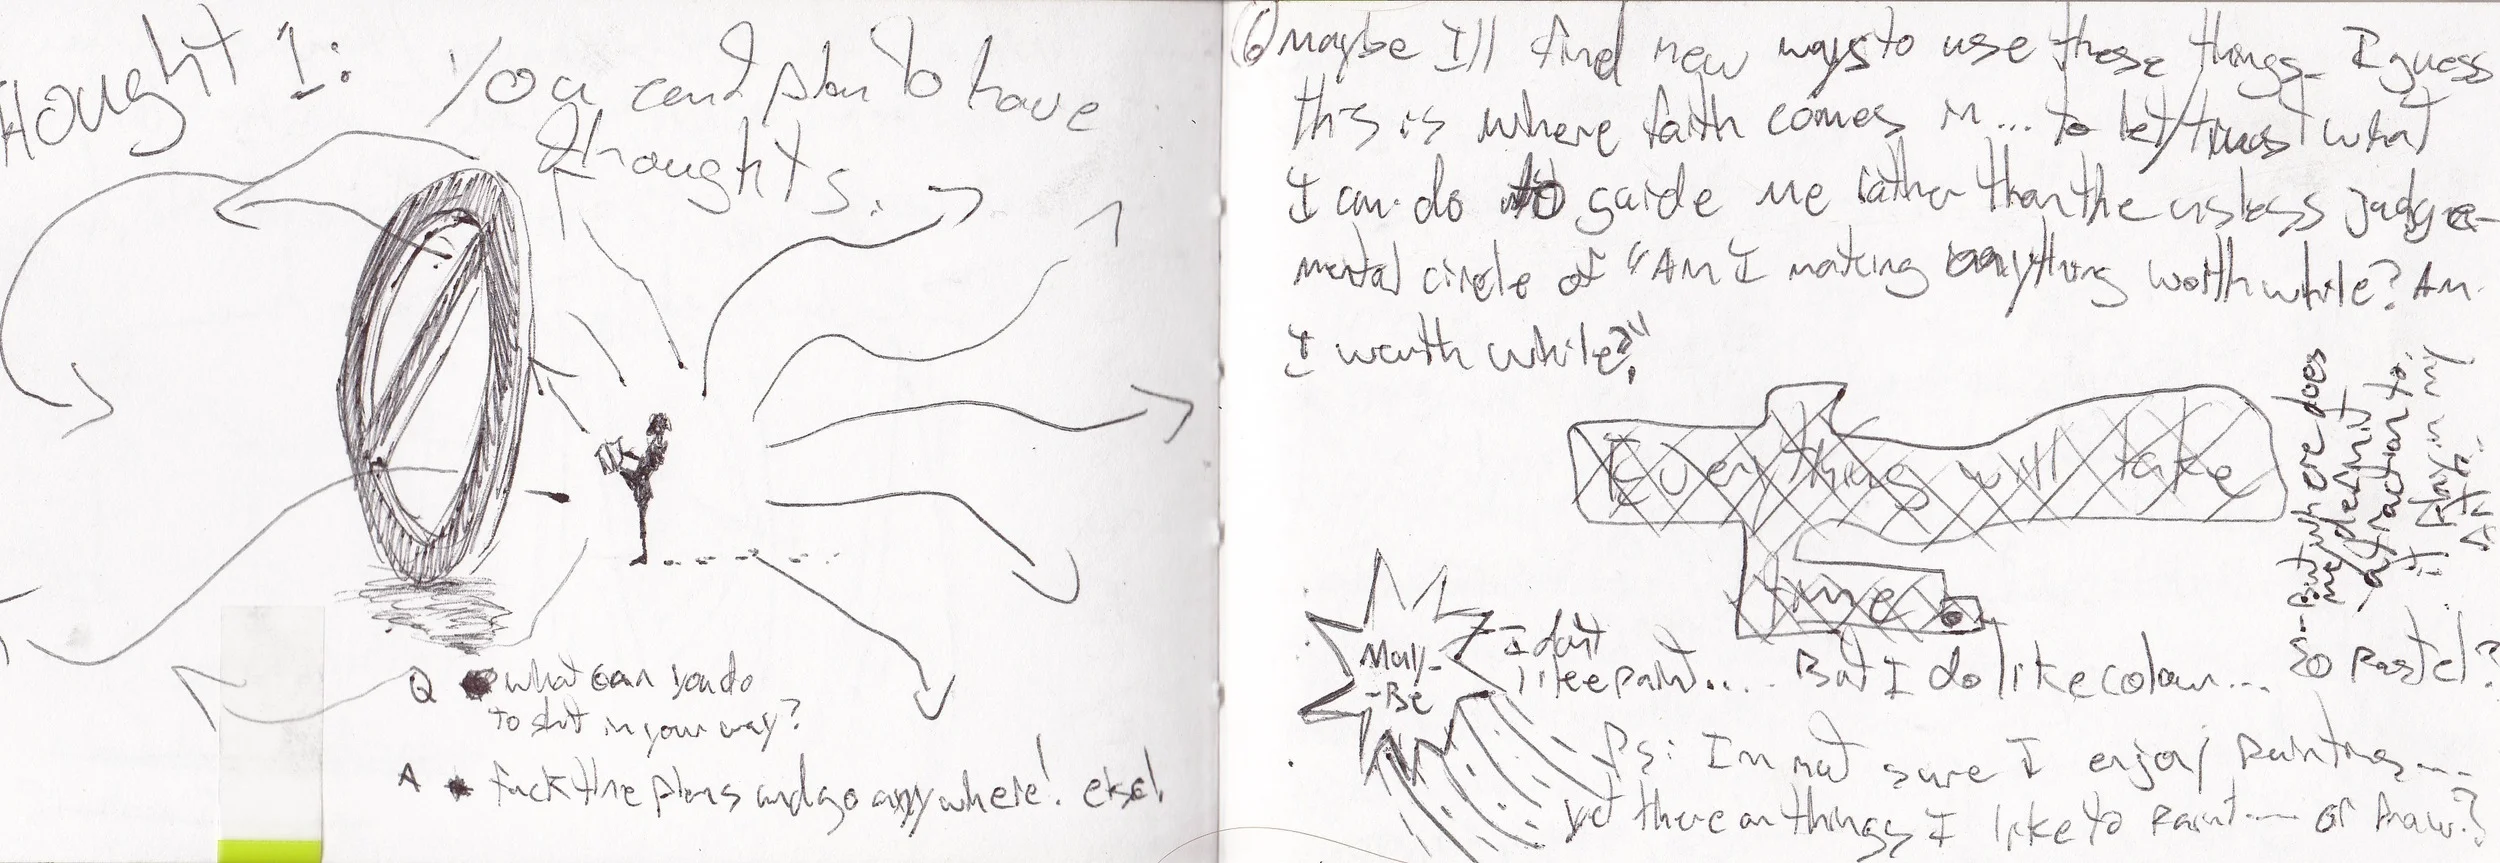 Hought 1: You cant plan to have
thoughts.
Q what can you do
to shit in your way?
A fuck the plans and go anywhere! else!
6 maybe I'll find new ways to use these things. I guess
this is where faith comes in... to let/trust what
I can do to guide me rather than the usless judge-
mental circle of "Am I making anything worth while? Am
I worth while?"
Everything will take
time
May-
-Be
I dont
like paint.... But I do like colour... So Pastel?
Ps: Im not sure I enjoy Painting---
yet there are things I like to Paint---- or Draw?
So-- But where does
my definit
attraction to
it play in my
Art...